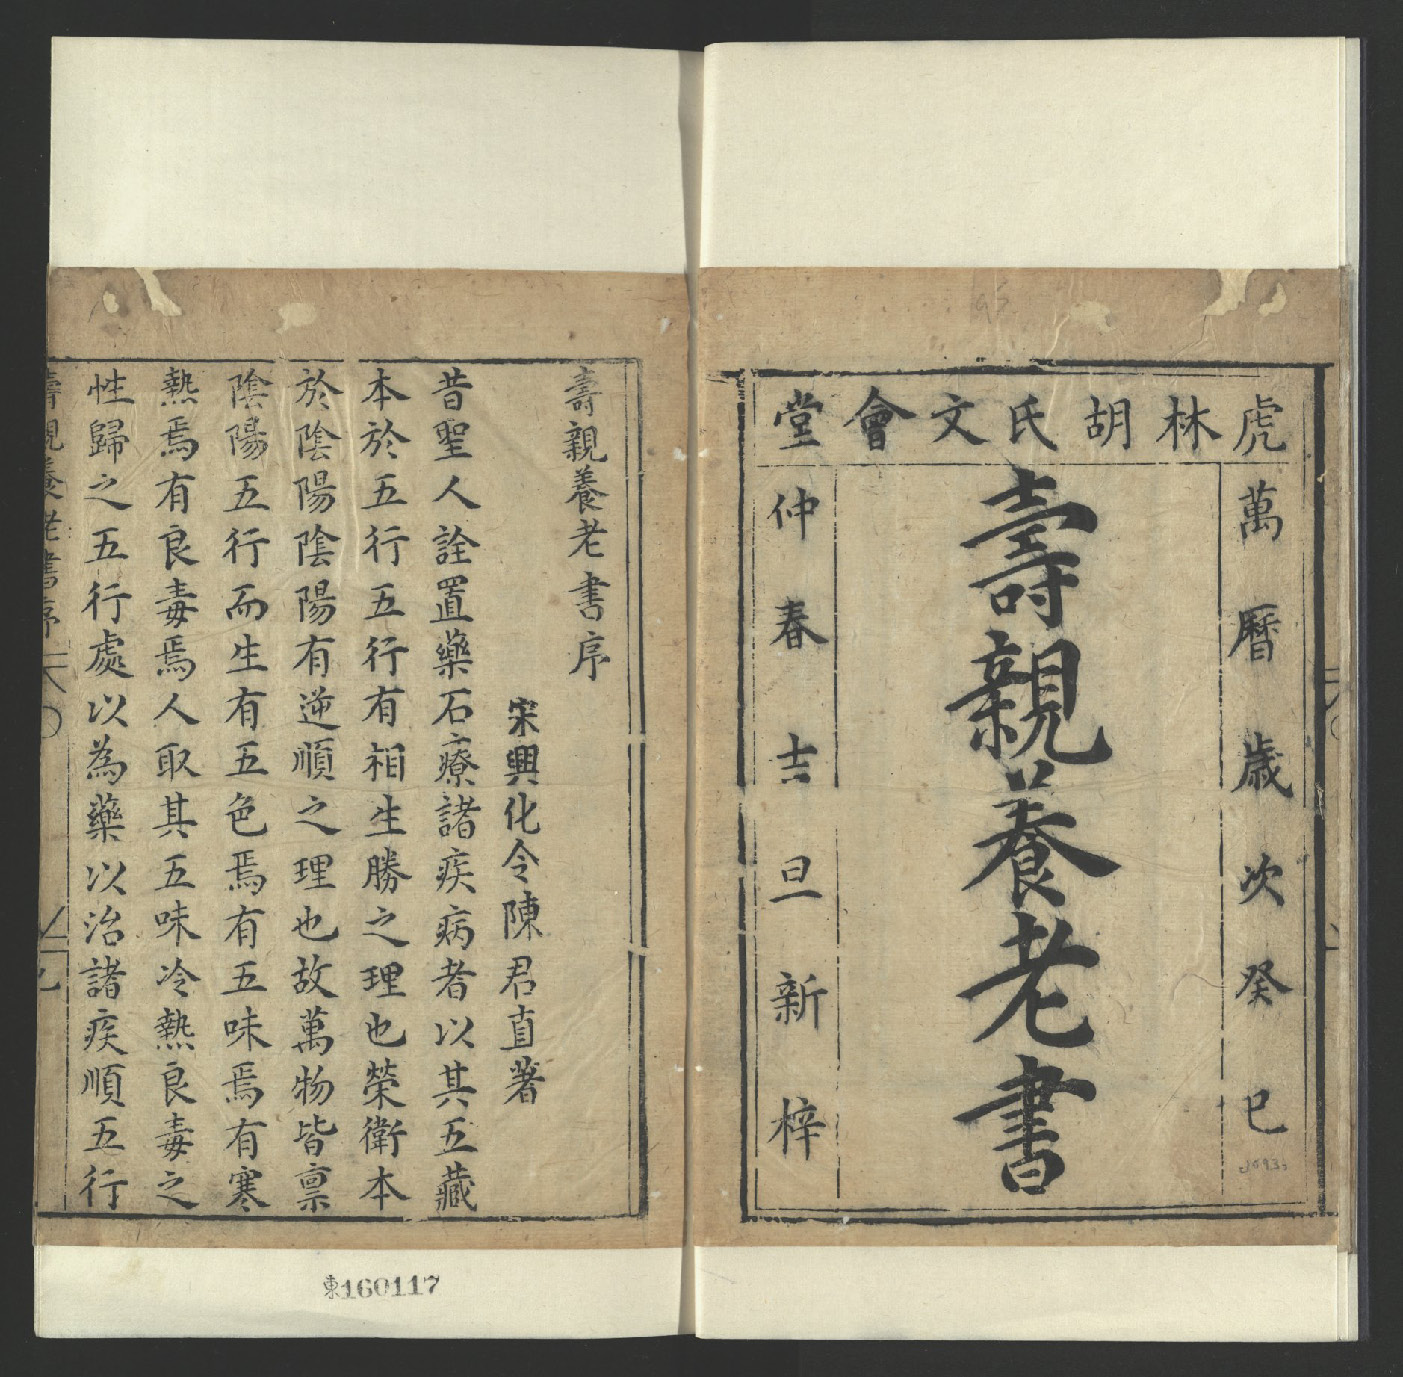 虎林胡氏文會堂
萬曆歲次癸巳
壽親養老書
仲春吉旦新梓
壽親養老書序
宋興化令陳君直著
昔聖人詮置藥石療諸疾病者以其五藏
本於五行五行有相生勝之理也榮衛本
於陰陽陰陽有逆順之理也故萬物皆禀
陰陽五行而生有五色焉有五味焉有寒
熱焉有良毒焉人取其五味冷熱良毒之
性歸之五行處以為藥以治諸疾順五行
壽親養老書序
東160117